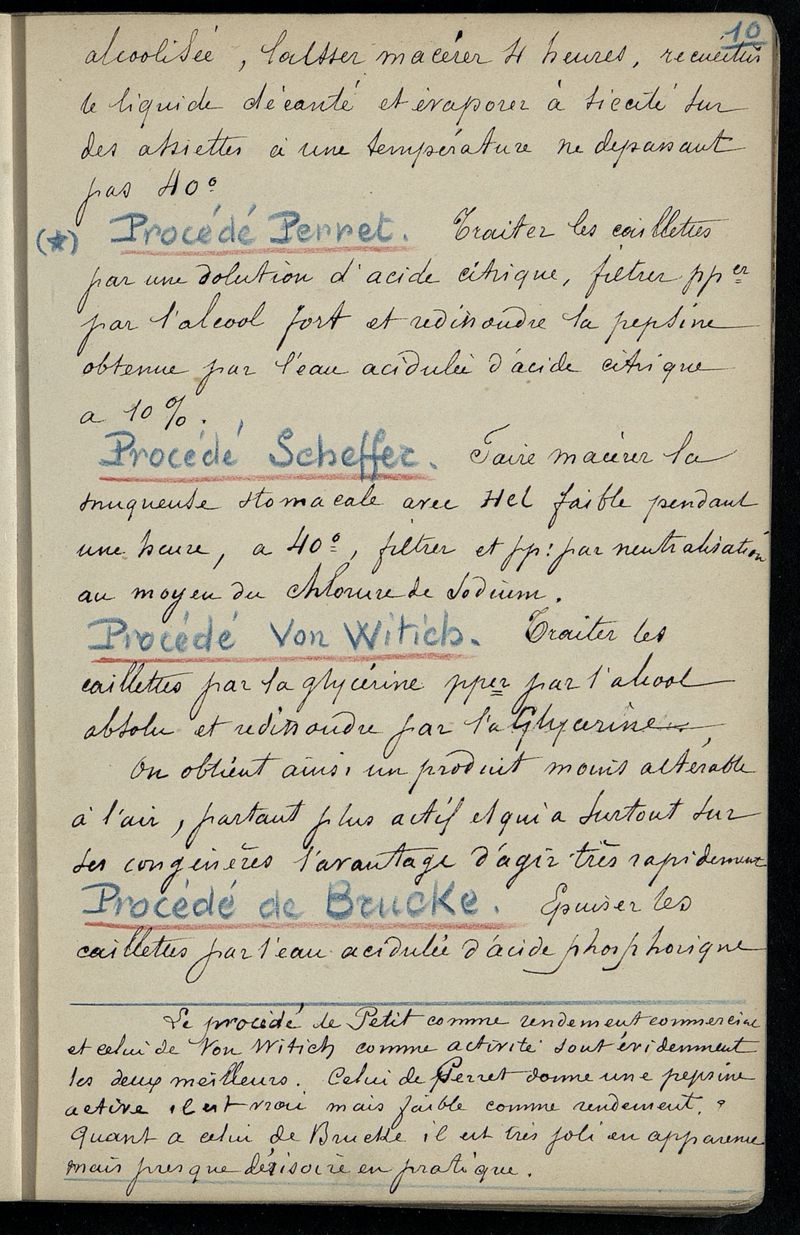 10
alcoolisée, laisser macérer 4 heures, recueillir
le liquide décanté et évaporer à siccité sur
des assiettes à une température ne depassant
pas 40°
(★) Procédé Perret. Traiter les caillettes
par une solution d'acide citrique, filtrer pper
par l'alcool fort et redissoudre la pepsine
obtenue par l'eau acidulée d'acide citrique
a 10 %.
Procédé Scheffer. Faire macérer la
muqueuse stomacale avec Hcl faible pendant
une heure, a 40°, filtrer et pp: par neutralisation
au moyen du chlorure de Sodium.
Procédé Von Witich. Traiter les
caillettes par la glycérine pper par l'alcool
absolu et redissoudre par la Glycerine
On obtient ainsi un produit moins altérable
à l'air, partant plus actif et qui a surtout sur
ses congénères l'avantage d'agir très rapidement
Procédé de Brucke. Epuiser les
caillettes par l'eau acidulée d'acide phosphorique
Le procédé de Petit comme rendement commercial
et celui de Von Witich comme activité sont évidemment
les deux meilleurs. Celui de Perret donne une pepsine
active il est vrai mais faible comme rendement.
Quant a celui de Brucke il est très joli en apparence
mais presque dérisoire en pratique.